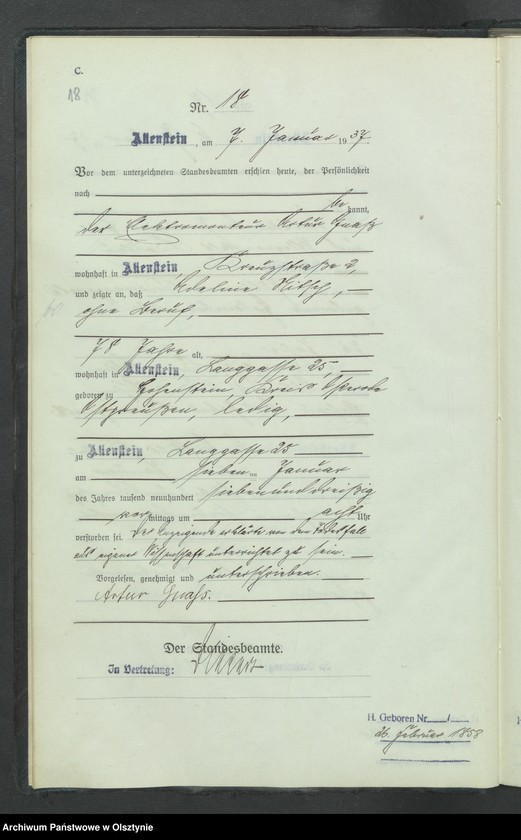 C.
18
Nr. 18
Allenstein, am 7. Januar 1937.
Vor dem unterzeichneten Standesbeamten erschien heute, der Persönlichkeit
nach
be kannt,
der Elektromonteur Artur Gnaß
wohnhaft in Allenstein, Kreuzstraße 2,
und zeigte an, daß Adeline
ohne Beruf,
78 Jahre alt,
wohnhaft in Allenstein, Langgasse 25,
geboren zu Hohenstein, Kreis Osterode
Ostpreußen, ledig,
zu Allenstein, Langgasse 25
am sieben ten Januar
des Jahres tausend neunhundert siebenunddreißig
vor mittags um acht Uhr
verstorben sei. Der Anzeigende erklärte von dem Todesfall
aus eigener Wissenschaft unterrichtet zu sein.
Vorgelesen, genehmigt und unterschrieben.
Artur Gnaß.
Der Standesbeamte.
In Vertretung:
H. Geboren Nr. /
26. Februar 1858
Archiwum Państwowe w Olsztynie
Archiwum Państwowe w Olsztynie